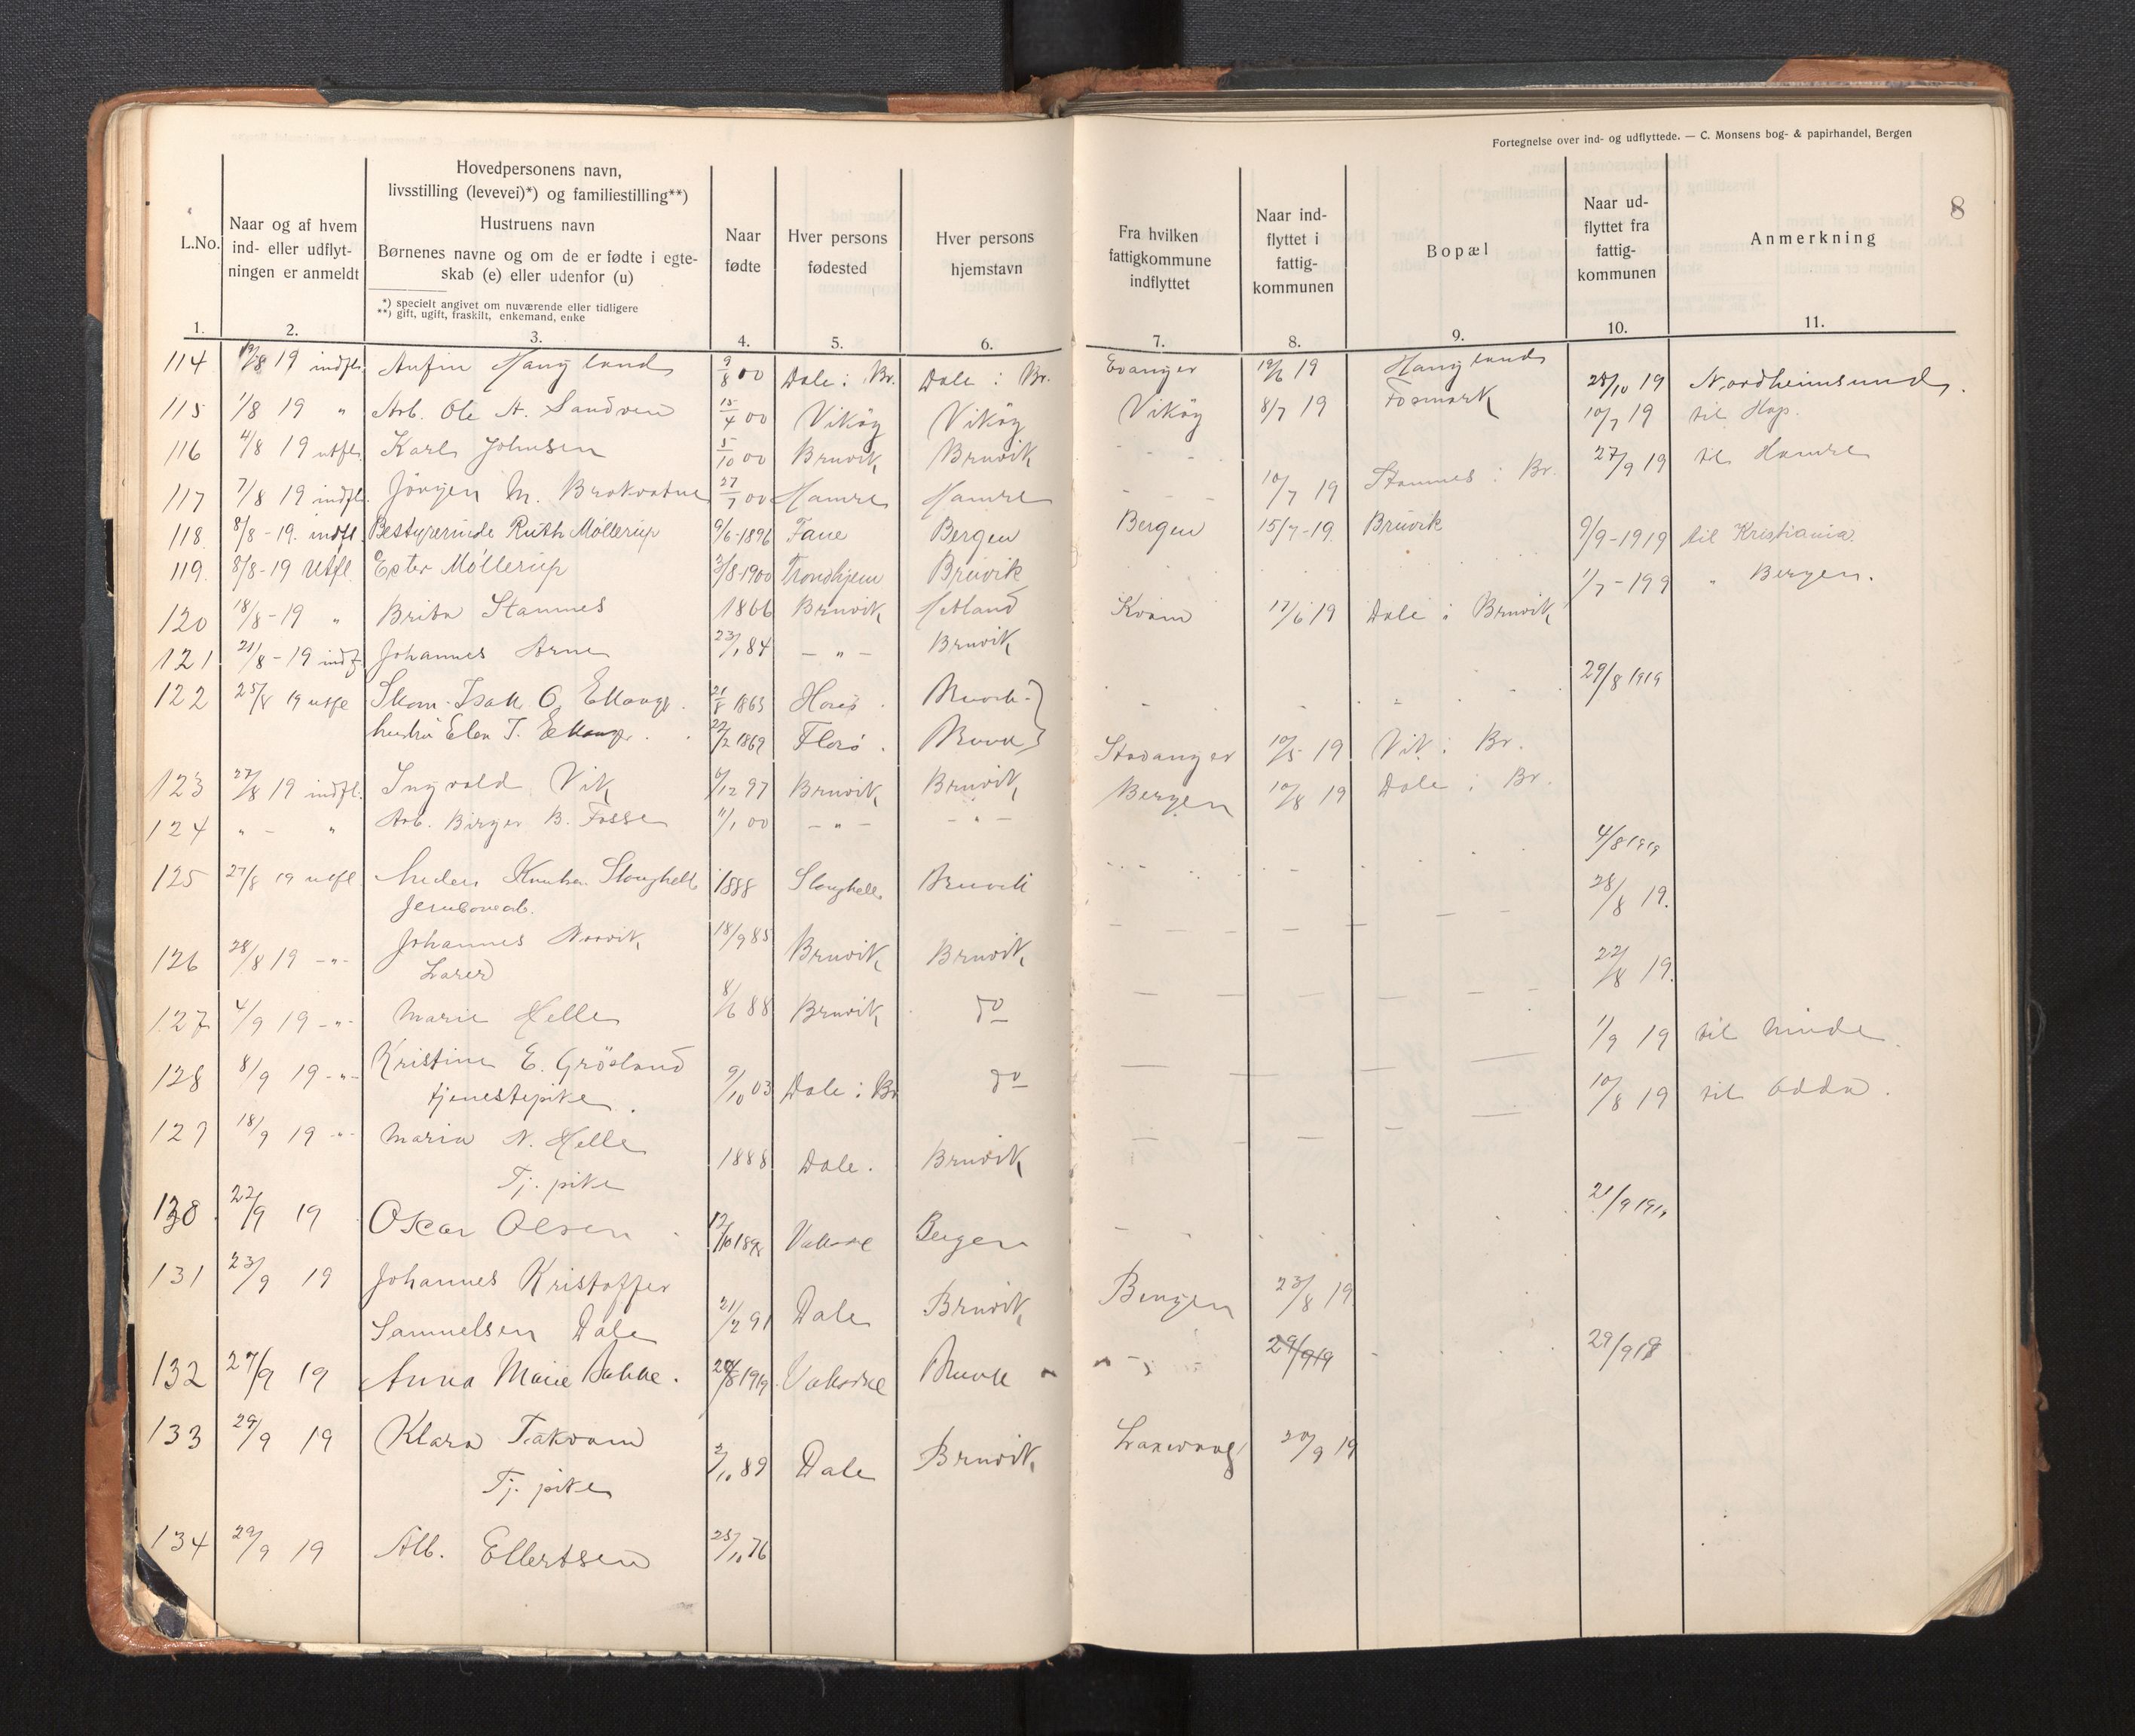 Fortegnelse over ind- og udflyttede. — C. Monsens bog- & papirhandel, Bergen
8
L.No.
Naar og af hvem ind- eller udflyt-ningen er anmeldt
Hovedpersonens navn,
livsstilling (levevei)*) og familiestilling**)
Hustruens navn
Børnenes navne og om de er fødte i egte-
skab (e) eller udenfor (u)
*) specielt angivet om nuværende eller tidligere
**) gift, ugift, fraskilt, enkemand, enke
Naar fødte
Hver persons fødested
Hver persons hjemstavn
Fra hvilken fattigkommune indflyttet
Naar ind-flyttet i fattig-kommunen
Bopæl
Naar ud-flyttet fra fattig-kommunen
Anmerkning
1. 2. 3. 4. 5. 6. 7. 8. 9. 10. 11.
114 19/8 19 indfl. Anfin Hangland 9/8 00 Dale i Br. Dale i Br. Evanger 12/6 19 Hangland
115 1/8 19 " Arb. Ole A. Sandven 15/4 00 Vikøy Vikøy Vikøy 8/7 19 Fosmark 28/10 19 Nordheimsund.
116 4/8 19 utfl. Karl Johnsen 5/10 00 Bruvik Bruvik - - - 10/7 19 til Hop.
117 7/8 19 indfl. Jörgen M. Brakvatne 27/7 00 Hamre Hamre - - - 10/7 19 Stamnes i Br. 27/9 19 til Hamre
118 8/8-19. indfl. Bestyrerinde Ruth Møllerup 9/6-1896 Fane Bergen Bergen 15/7-19. Bruvik 9/9-1919 til Kristiania.
119. 8/8-19 Utfl. Ester Møllerup 3/8-1900 Trondhjem Bruvik 1/7-199 " Bergen.
120 18/8-19 " Brita Stamnes 1866 Bruvik Kvam 17/6 19 Dale i Bruvik
121 21/8-19 indf Johannes Arne 23/1 84 - " - Bruvik
122 25/8 19 utfl Isak O. Ekanger 21/8 1865 29/8 1919
hustru Elen T. Ekanger 1869 Florø
123 27/8 19 indfl. Ingvald Vik 6/12 97 Bruvik Bruvik Stavanger 10/5 19 Vik i Br.
124 " - " Arb. Birger B. Fosse 11/1 00 - " - - " - Bergen 10/8 19 Dale i Br.
125 27/8 19 utfl Anders Knutsen Sloughell 1888 Bruvik 4/8 1919
126 28/8 19 -"- Johannes 18/9 85 Bruvik Bruvik 28/8 19.
Lærer
127 4/9 19 -"- Marie Helle 8/6 88 Bruvik do 22/8 19.
128 8/9 19 -"- Kristine E. Grösland 9/10 03 Dale i Br do 1/9 19 til Minde.
tjenestepike.
129 18/9 19 -"- Maria N. Helle 1888 Dale. Bruvik 10/8 19 til Odda.
Tj. pike
130. 22/9 19 Oscar Olsen 12/10 189 Vaksdal Bergen 21/9 1919
131 23/9 19 Johannes Kristoffer
Samuelsen Dale 21/2 91 Dale Bruvik Bergen 23/8 19
132 27/9 19 Anna Marie Bakke. 8 1919 Vaksdal Bruvik 29/9 19 29/9 19
133 29/9 19 Klara Takvam 2/10 89 Dale Bruvik Laxevaag 20/9 19
Tj. pike
134 29/9 19 Alb. Ellertsen 25/10 76